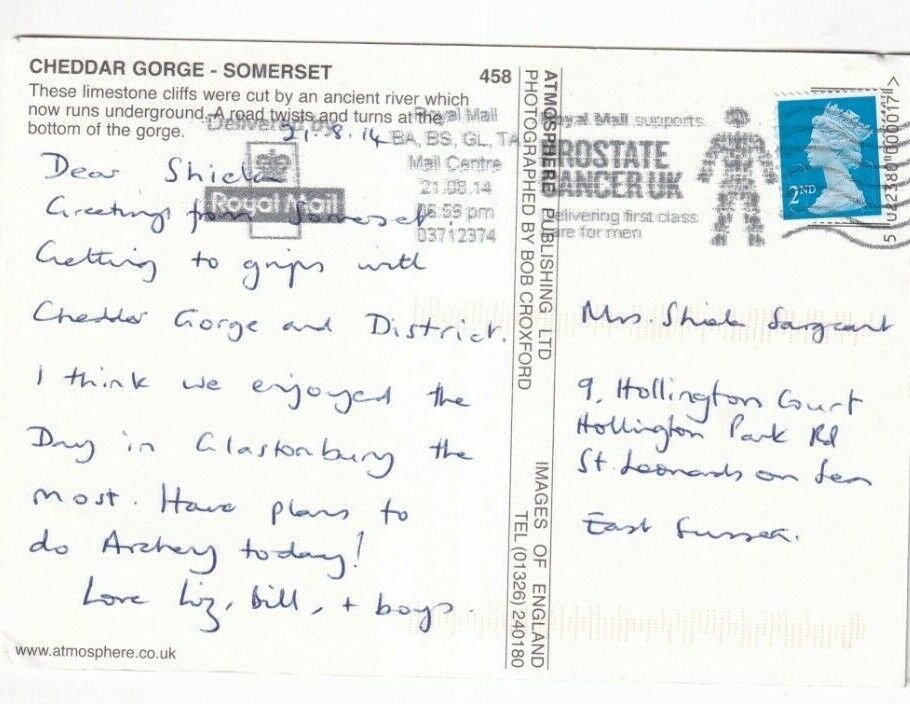 CHEDDAR GORGE - SOMERSET
458
These limestone cliffs were cut by an ancient river which
now runs underground. A road twists and turns at the
bottom of the gorge.
21.8.14
Dear Shiela
Greetings from Somerset
Getting to grips with
Cheddar Gorge and District.
I think we enjoyed the
Day in Glastonbury the
most. Have plans to
do Archery today!
Love Liz, Bill, + boys.
www.atmosphere.co.uk
Delivered by
Royal Mail
Royal Mail
BA, BS, GL, TA
Mail Centre
21.08.14
06:59 pm
03712374
Royal Mail supports
PROSTATE
CANCER UK
Delivering first class
care for men
2ND
ATMOSPHERE PUBLISHING LTD
PHOTOGRAPHED BY BOB CROXFORD
IMAGES OF ENGLAND
TEL (01326) 240180
Mrs. Shiela Sargeant
9, Hollington Court
Hollington Park Rd
St. Leonards on Sea
East Sussex.